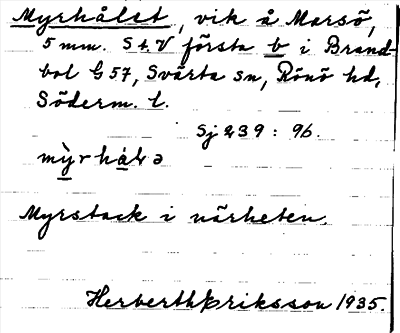 Myrhålet, vik å Marsö,
5 mm. S t. V första b i Brand-
bol G 57, Svärta sn, Rönö hd,
Söderm. l.
Sj 239 : 96.
mẏ̠rhål̠ə
Myrstack i närheten.
Herberth Eriksson 1935.